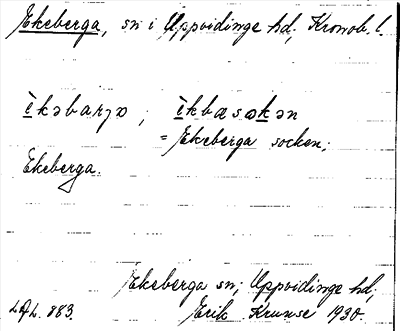 Ekeberga, sn i Uppvidinge hd, Kronob. l.
èkəbarγɒ ; èkbæsɷkən
= Ekeberga socken;
Ekeberga.
Ekeberga sn; Uppvidinge hd;
LAL. 883. Erik Krunse 1930.